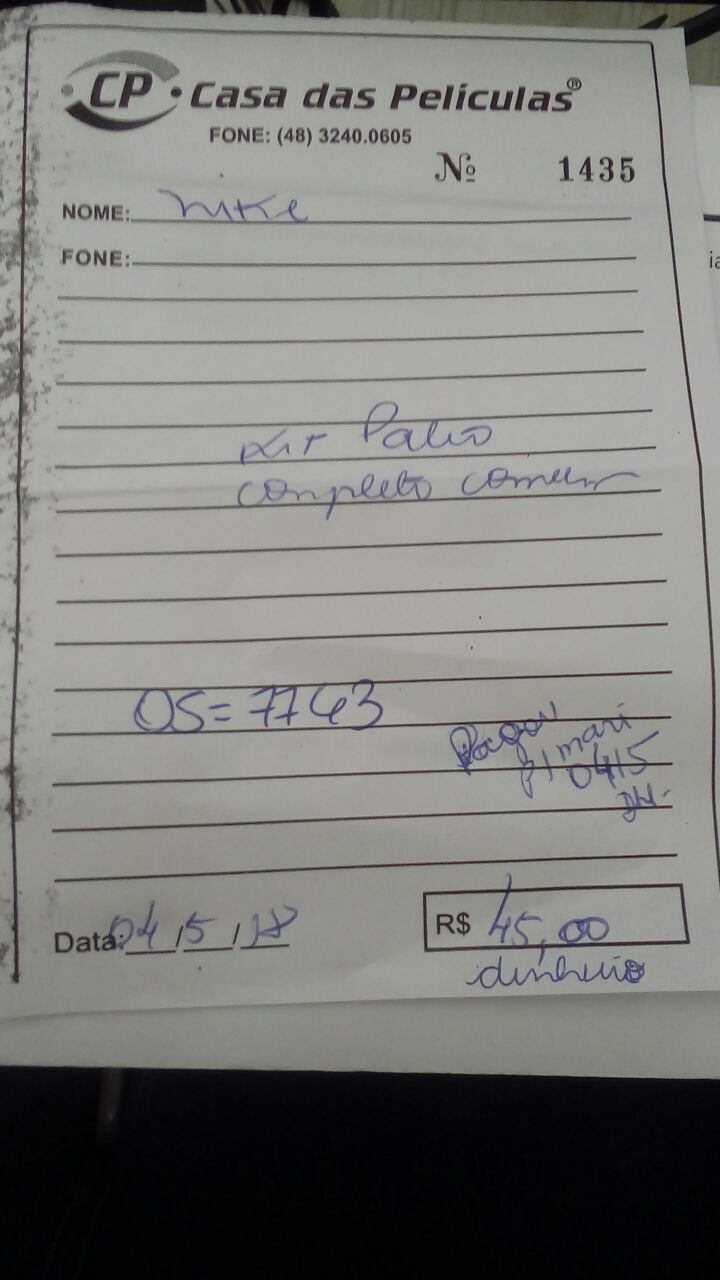 CP Casa das Películas®
FONE: (48) 3240.0605
Nº 1435
NOME: Nike
FONE:
Kit Palio
completo comum
OS=7743
Pagou
p/ mari
04/5
Data: 04/5/18
R$ 45,00
dinheiro